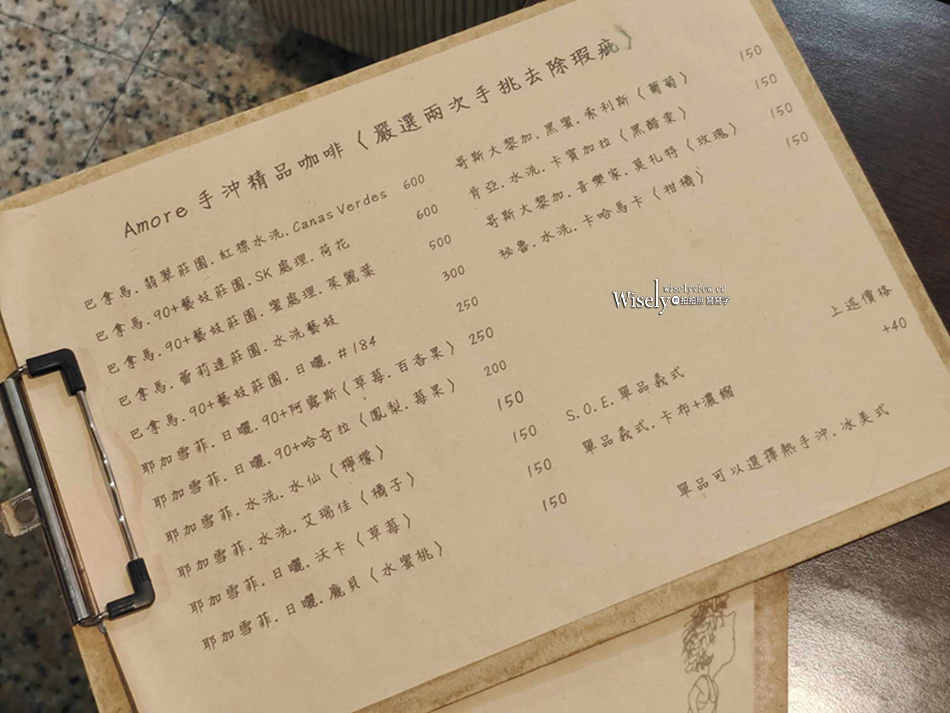 Amore 手沖精品咖啡〈嚴選兩次手挑去除瑕疵〉
巴拿馬.翡翠莊園.紅標水洗.Canas Verdes 600
巴拿馬.90+藝妓莊園.SK處理.荷花 600
巴拿馬.90+藝妓莊園.蜜處理.茱麗葉 500
巴拿馬.蕾莉達莊園.水洗藝妓 300
巴拿馬.90+藝妓莊園.日曬.#184 250
耶加雪菲.日曬.90+阿露斯〈草莓.百香果〉 250
耶加雪菲.日曬.90+哈奇拉〈鳳梨.莓果〉 200
耶加雪菲.水洗.水仙〈檸檬〉 150
耶加雪菲.水洗.艾瑞佳〈橘子〉 150
耶加雪菲.日曬.沃卡〈草莓〉 150
耶加雪菲.日曬.龐貝〈水蜜桃〉 150
哥斯大黎加.黑蜜.索利斯〈葡萄〉 150
肯亞.水洗.卡賓加拉〈黑爵麥〉 150
哥斯大黎加.音樂家.莫札特〈玫瑰〉 150
祕魯.水洗.卡哈馬卡〈柑橘〉 150
S.O.E.單品義式 上述價格
單品義式.卡布+濃縮 +40
單品可以選擇熱手沖.冰美式
Wisely
wiselyview.cc
拍拍照寫寫字